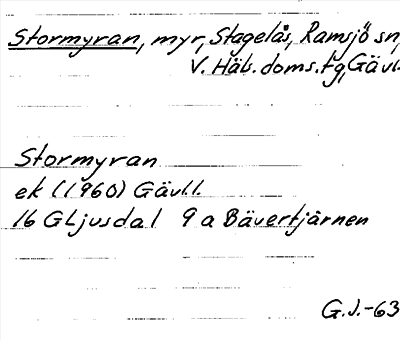 Stormyran, myr, Stagelås, Ramsjö sn,
V. Häls. doms. tg, Gävl.
Stormyran
ek (1960) Gävl.l.
16 G Ljusdal 9 a Bävertjärnen
G.J.-63